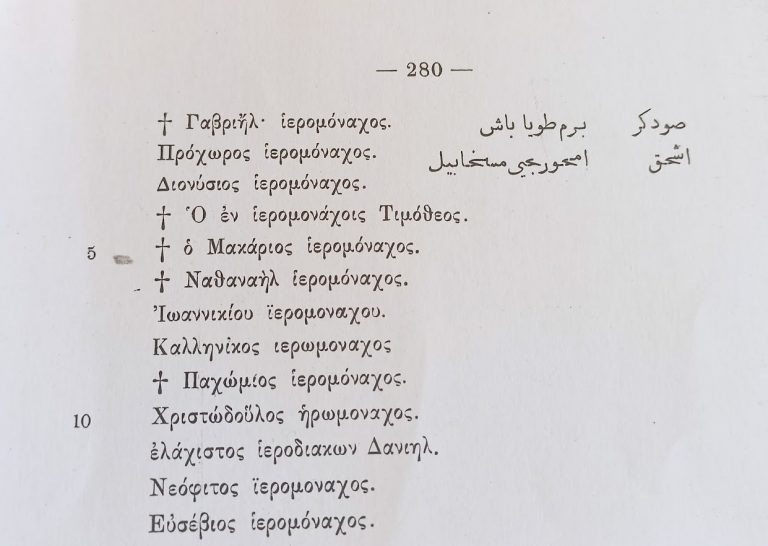 — 280 —
† Γαβριῆλ· ἱερομόναχος. برم طويا باش صودكر
Πρόχωρος ἱερομόναχος. اشحق
Διονύσιος ἱερομόναχος.
† Ὁ ἐν ἱερομονάχοις Τιμόθεος.
5 † ὁ Μακάριος ἱερομόναχος.
† Ναθαναὴλ ἱερομόναχος.
Ἰωαννικίου ϊερομοναχου.
Καλληνῖκος ιερωμοναχος
† Παχώμιος ἱερομόναχος.
10 Χριστώδοῦλος ἡρωμοναχος.
ἐλάχιστος ἱεροδιακων Δανιηλ.
Νεόφιτος ϊερομοναχος.
Εὐσέβιος ἱερομόναχος.